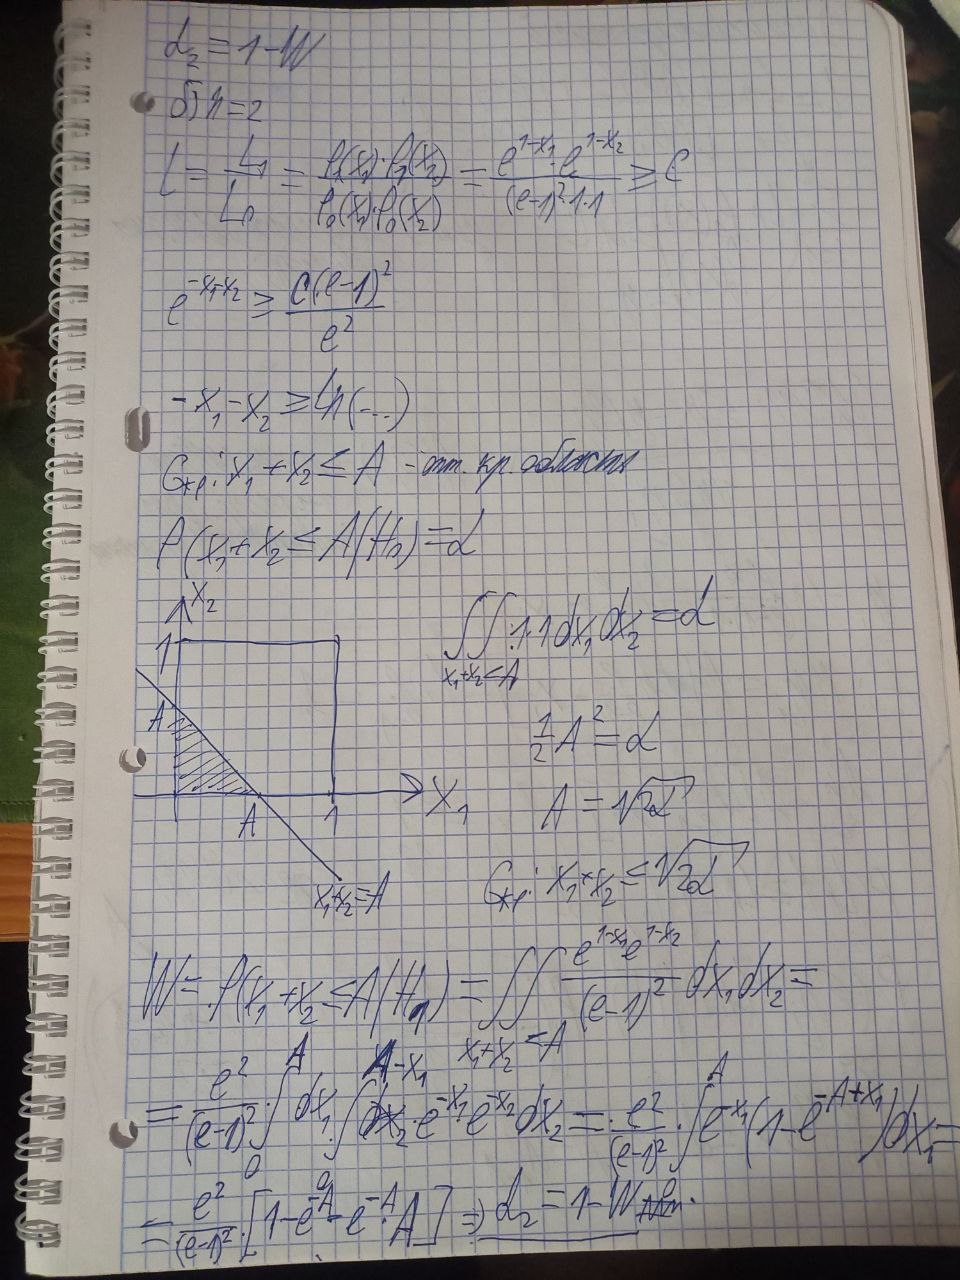 α₂ = 1 - W
б) n = 2
l = L₁/L₀ = p₁(x₁)·p₁(x₂) / p₀(x₁)·p₀(x₂) = e^(1-x₁)·e^(1-x₂) / (e-1)²·1·1 ≥ C
e^(-x₁-x₂) ≥ C(e-1)² / e²
-x₁ - x₂ ≥ ln(...)
Gкр: x₁ + x₂ ≤ A - опт. кр. область
P(x₁ + x₂ ≤ A | H₀) = α
x₂
1
A
A
1
x₁
x₁+x₂=A
∬ 1·1 dx₁ dx₂ = α
x₁+x₂≤A
½A² = α
A = √2α
Gкр: x₁+x₂ ≤ √2α
W = P(x₁ + x₂ ≤ A | H₁) = ∬_(x₁+x₂≤A) e^(1-x₁)e^(1-x₂) / (e-1)² dx₁ dx₂ =
= e²/(e-1)² · ∫₀^A dx₁ ∫₀^(A-x₁) e^(-x₁)·e^(-x₂) dx₂ = e²/(e-1)² · ∫^A e^(-x₁)(1-e^(-A+x₁)) dx₁ =
= e²/(e-1)² · [1 - e^(-A) - e^(-A)·A] ⇒ α₂ = 1 - W